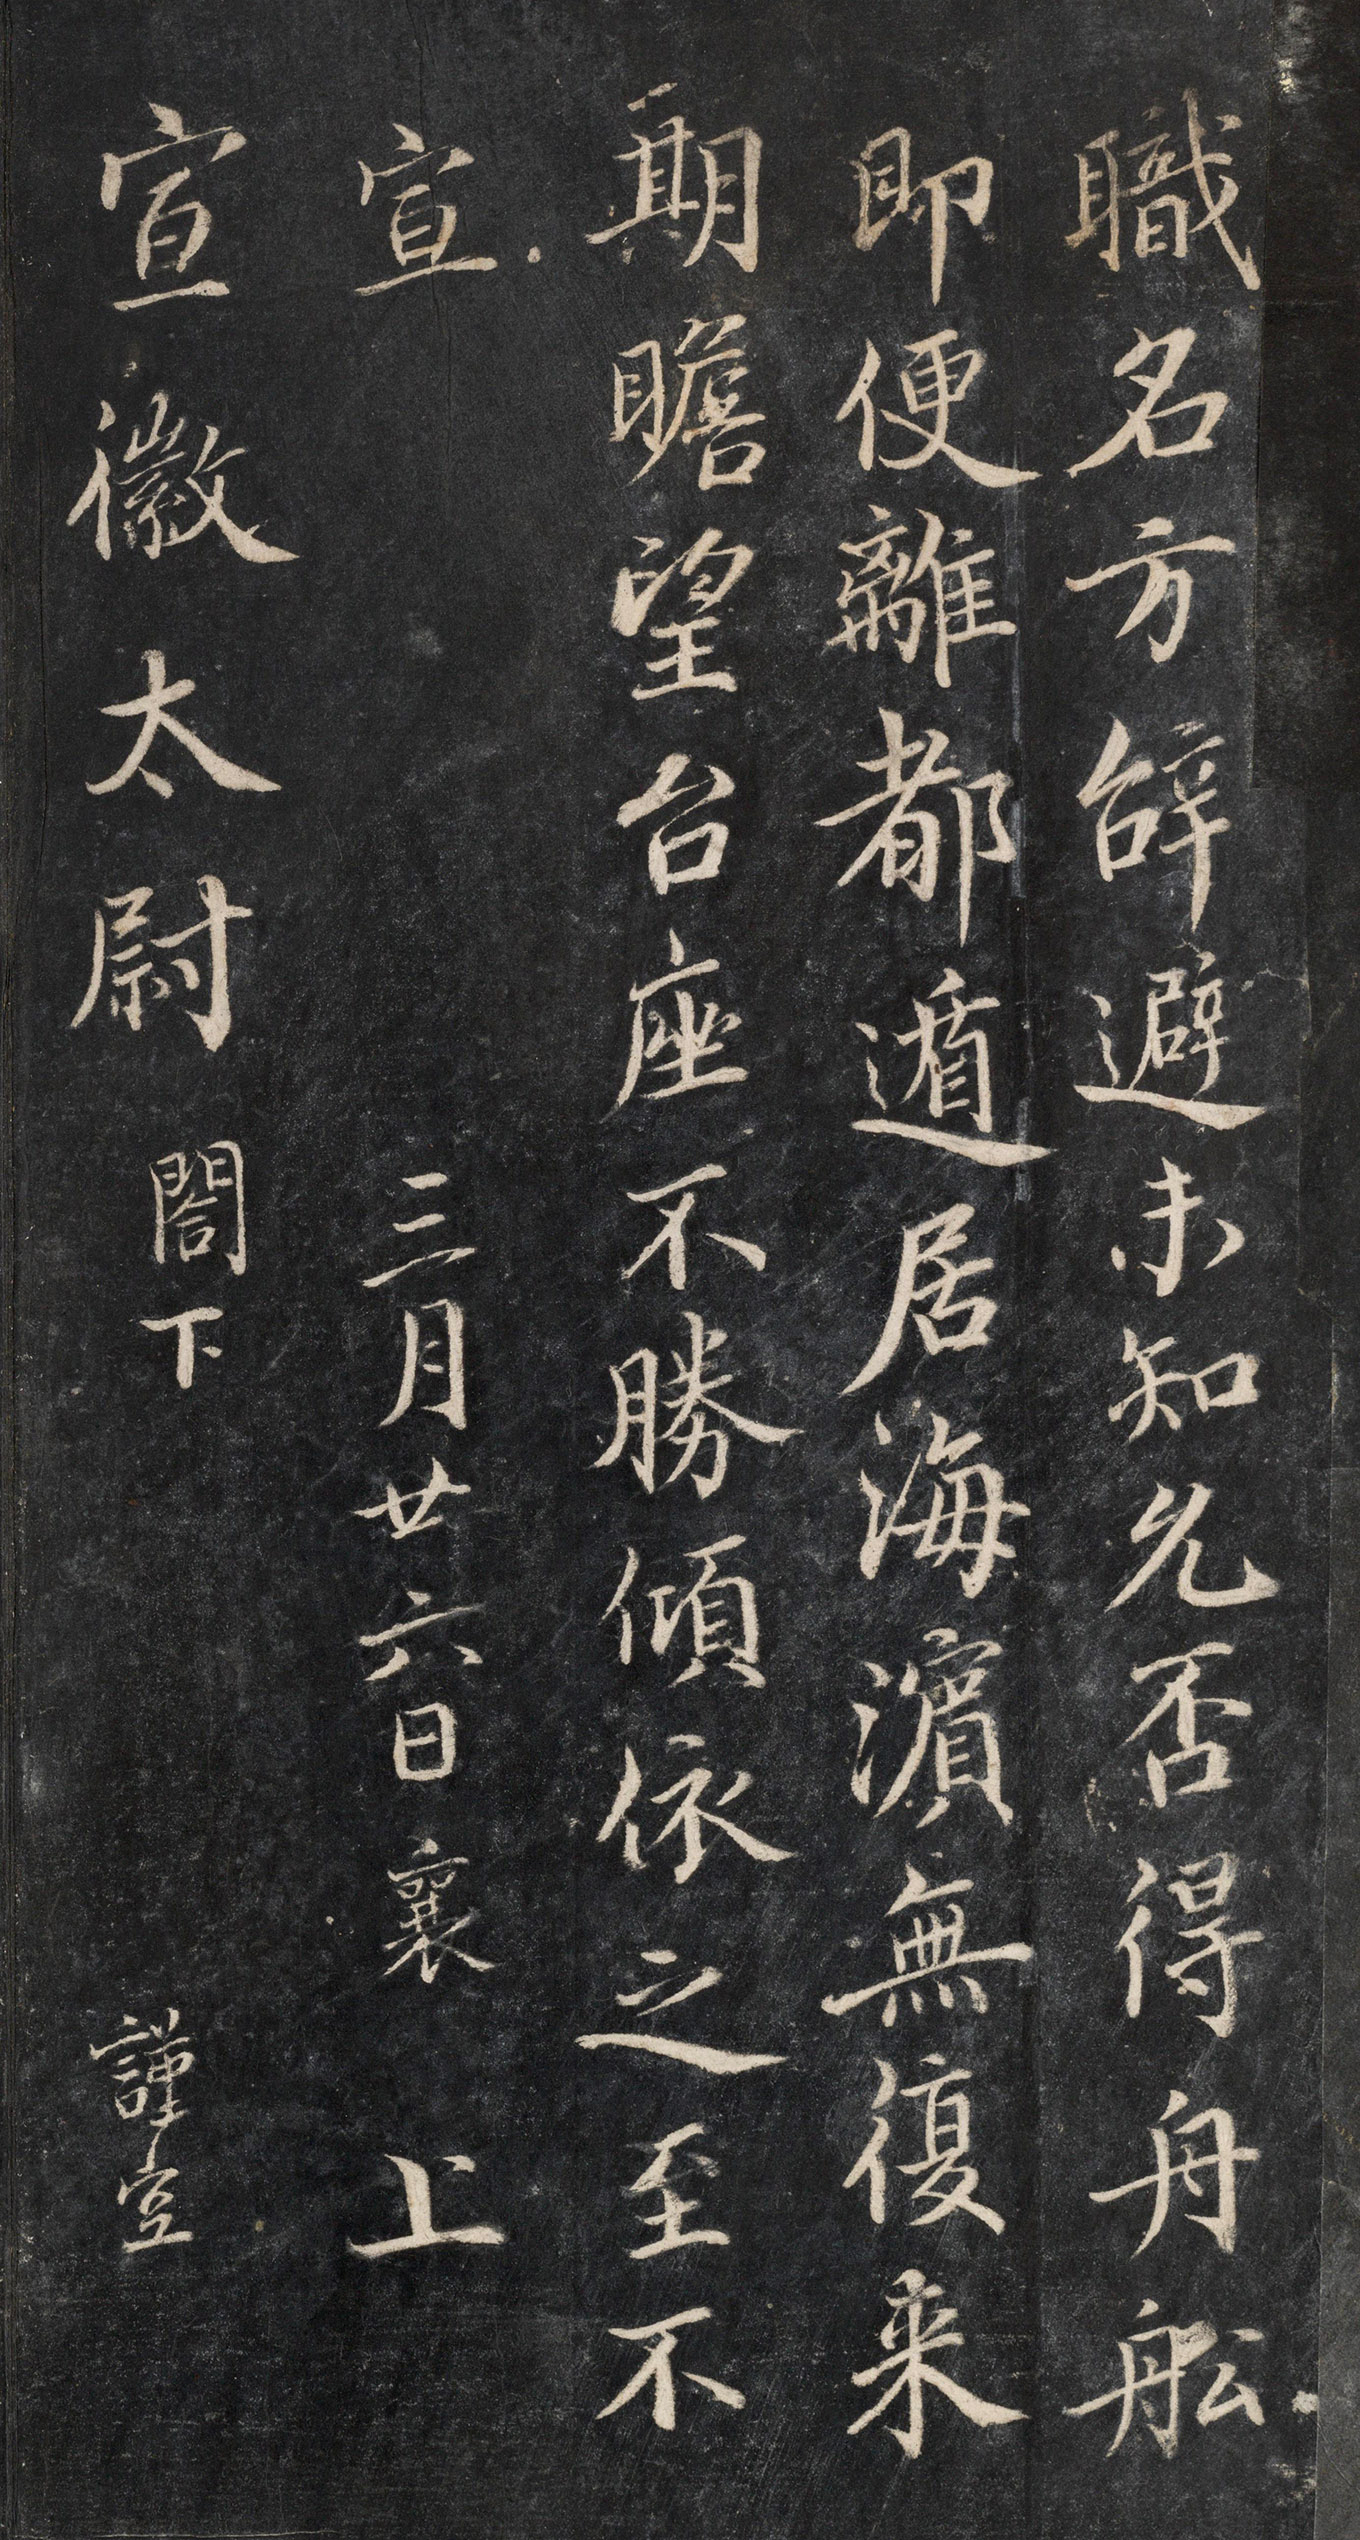 職名方辝避未知允否得舟舩
即便離都遁居海濵無復来
期瞻望台座不勝傾依之至不
宣 三月廿六日襄上
宣徽太尉閤下 謹空